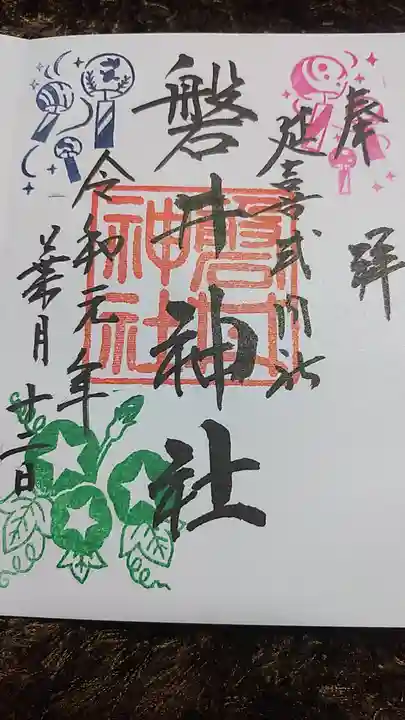 奉拝
延喜式内社
磐井神社
磐井神社
令和元年
葉月十二日